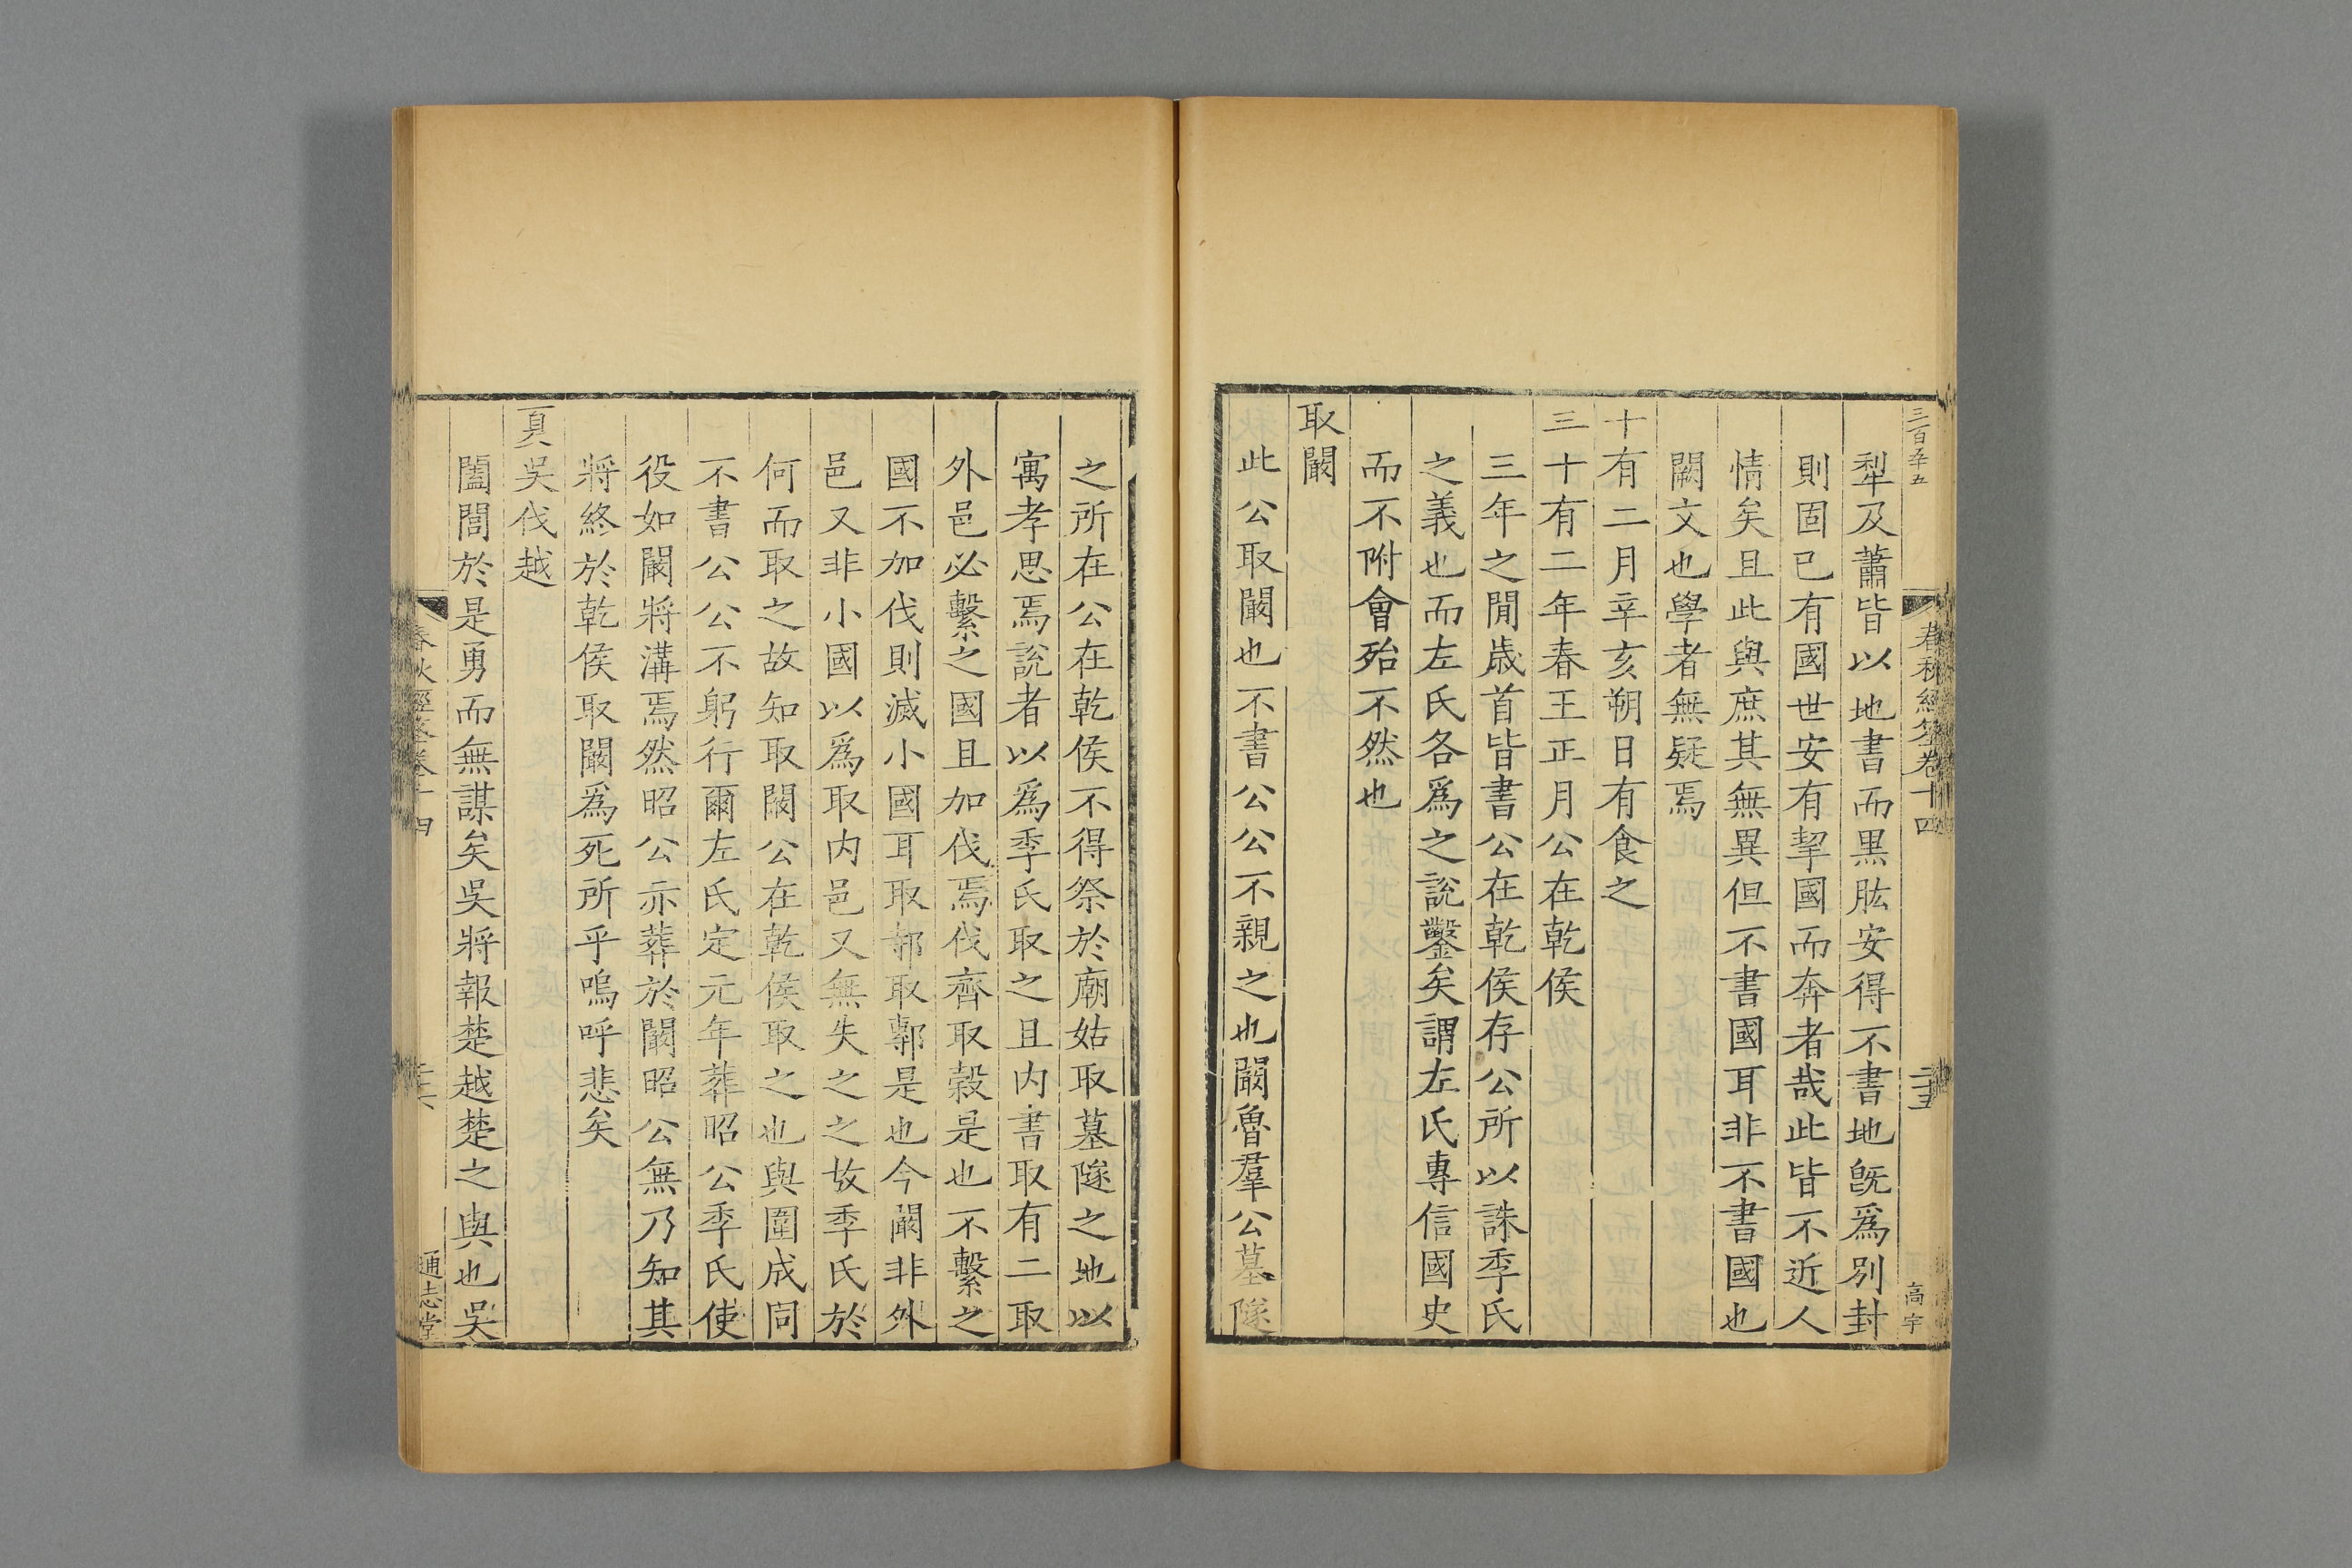 三百五
春秋經筌卷十四
二十五
高宇
犁及蕭皆以地書而黒肱安得不書地既爲別封
則固已有國世安有挈國而奔者哉此皆不近人
情矣且此與庶其無異但不書國耳非不書國也
闕文也學者無疑焉
十有二月辛亥朔日有食之
三十有二年春王正月公在乾侯
三年之閒歳首皆書公在乾侯存公所以誅季氏
之義也而左氏各爲之說鑿矣謂左氏專信國史
而不附會殆不然也
取闞
此公取闞也不書公公不親之也闞魯羣公墓隧
之所在公在乾侯不得祭於廟姑取墓隧之地以
寓孝思焉說者以爲季氏取之且内書取有二取
外邑必繫之國且加伐焉伐齊取穀是也不繫之
國不加伐則滅小國耳取邿取鄟是也今闞非外
邑又非小國以爲取内邑又無失之之故季氏於
何而取之故知取闞公在乾侯取之也與圍成同
不書公公不躬行爾左氏定元年葬昭公季氏使
役如闞將溝焉然昭公亦葬於闞昭公無乃知其
將終於乾侯取闞爲死所乎嗚呼悲矣
夏吳伐越
闔閭於是勇而無謀矣吳將報楚越楚之與也吳
春秋經筌卷十四
二十六
通志堂